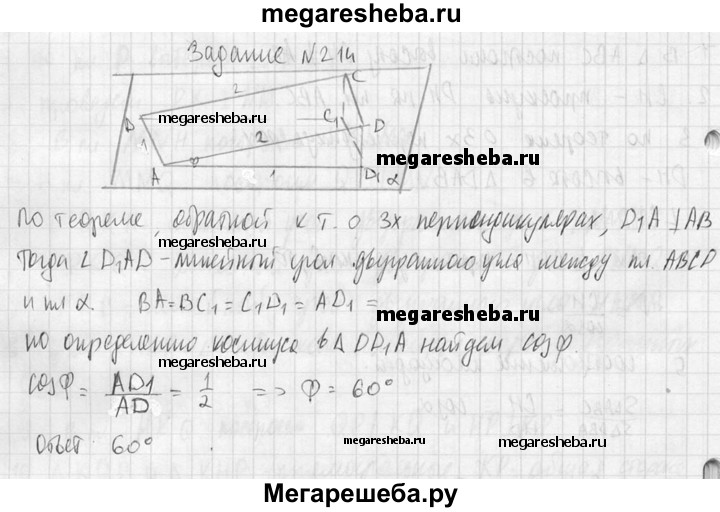 megaresheba.ru
Задание №214
C
2
megaresheba.ru
C₁
B
1
2
D
φ
A
1
D₁ α
megaresheba.ru
megaresheba.ru
По теореме, обратной к т. о 3х перпендикулярах, D₁A ⊥ AB
Тогда ∠D₁AD – линейный угол двугранного угла между пл. ABCD
и пл α. BA = BC₁ = C₁D₁ = AD₁ =
megaresheba.ru
по определению косинуса в Δ DD₁A найдем cosφ.
megaresheba.ru
cosφ = AD1/AD = 1/2 => φ = 60°
Ответ 60°
megaresheba.ru
megaresheba.ru
Мегарешеба.ру